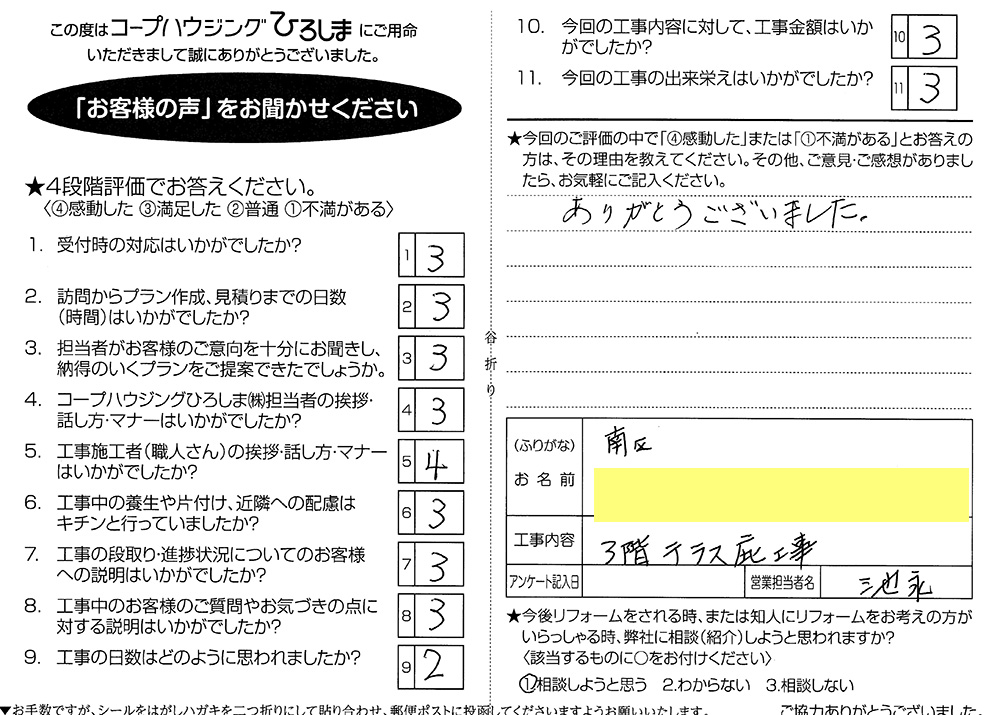 この度はコープハウジングひろしまにご用命
いただきまして誠にありがとうございました。
「お客様の声」をお聞かせください
★4段階評価でお答えください。
〈④感動した ③満足した ②普通 ①不満がある〉
1. 受付時の対応はいかがでしたか?
1 3
2. 訪問からプラン作成、見積りまでの日数
(時間)はいかがでしたか?
2 3
3. 担当者がお客様のご意向を十分にお聞きし、
納得のいくプランをご提案できたでしょうか。
3 3
4. コープハウジングひろしま㈱担当者の挨拶・
話し方・マナーはいかがでしたか?
4 3
5. 工事施工者(職人さん)の挨拶・話し方・マナー
はいかがでしたか?
5 4
6. 工事中の養生や片付け、近隣への配慮は
キチンと行っていましたか?
6 3
7. 工事の段取り・進捗状況についてのお客様
への説明はいかがでしたか?
7 3
8. 工事中のお客様のご質問やお気づきの点に
対する説明はいかがでしたか?
8 3
9. 工事の日数はどのように思われましたか?
9 2
▼お手数ですが、シールをはがしハガキを二つ折りにして貼り合わせ、郵便ポストに投函してくださいますようお願いいたします。
谷折り
10. 今回の工事内容に対して、工事金額はいか
がでしたか?
10 3
11. 今回の工事の出来栄えはいかがでしたか?
11 3
★今回のご評価の中で「④感動した」または「①不満がある」とお答えの
方は、その理由を教えてください。その他、ご意見・ご感想がありまし
たら、お気軽にご記入ください。
ありがとうございました。
(ふりがな)
お名前
南区
工事内容
3階 テラス庇工事
アンケート記入日
営業担当者名
池永
★今後リフォームをされる時、または知人にリフォームをお考えの方が
いらっしゃる時、弊社に相談(紹介)しようと思われますか?
〈該当するものに○をお付けください〉
①相談しようと思う 2.わからない 3.相談しない
ご協力ありがとうございました。